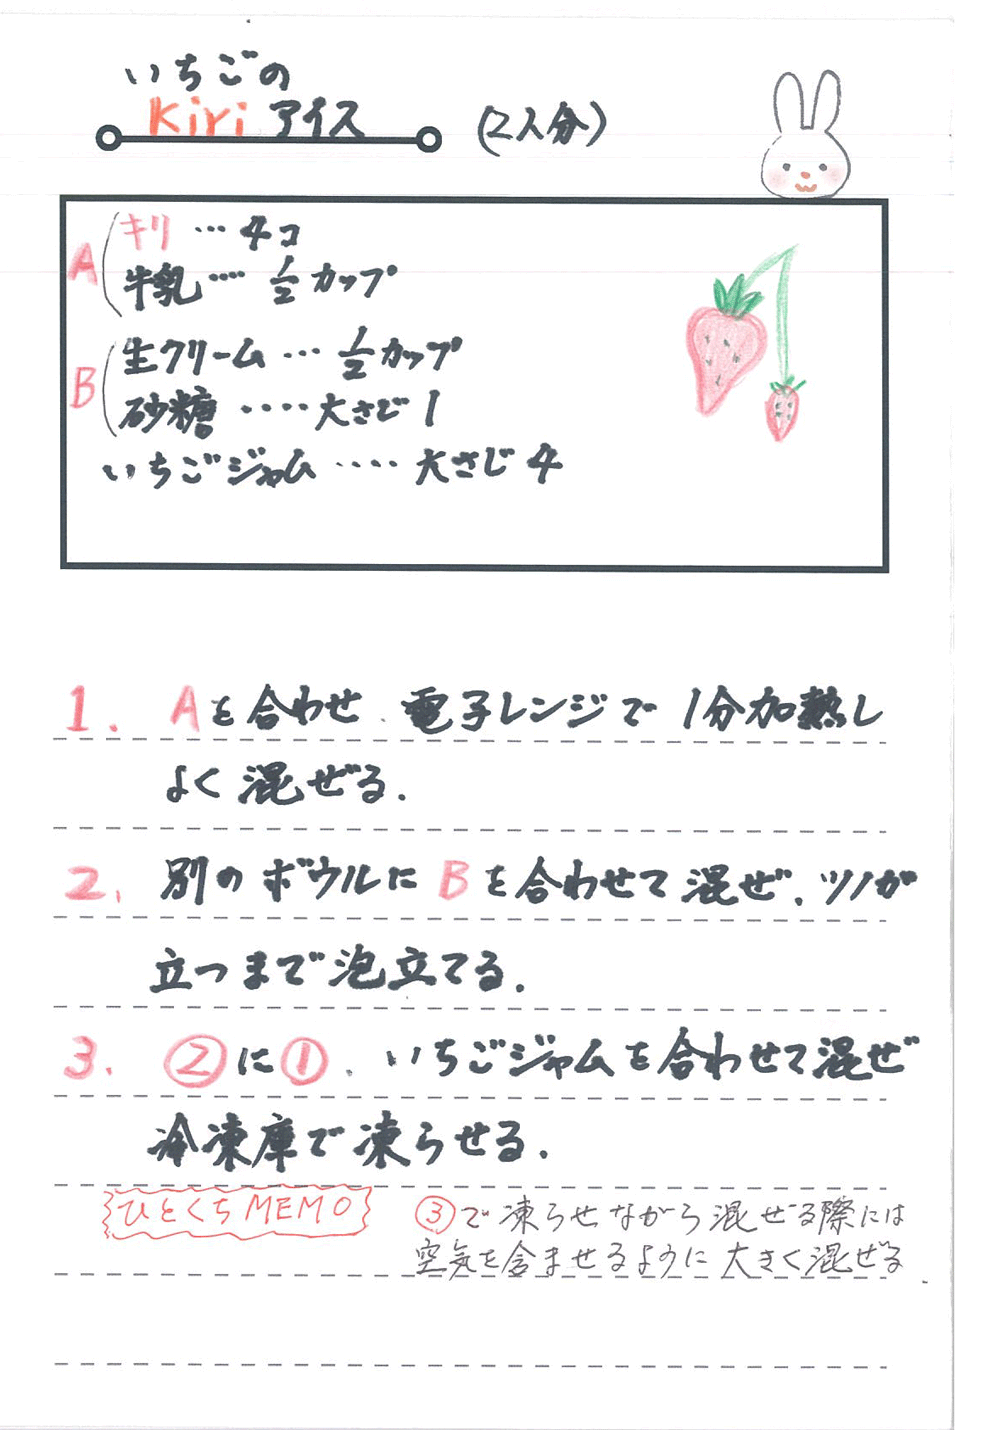 いちごの
Kiri アイス (2人分)
A
キリ … 4コ
牛乳 … 1/2 カップ
B
生クリーム … 1/2カップ
砂糖 ‥‥ 大さじ 1
いちごジャム ‥‥ 大さじ 4
1. Aを合わせ、電子レンジで 1分加熱し
よく混ぜる.
2. 別のボウルに Bを合わせて混ぜ、ツノが
立つまで泡立てる.
3. ②に①、いちごジャムを合わせて混ぜ
冷凍庫で凍らせる.
ひとくちMEMO ③で凍らせながら混ぜる際には
空気を含ませるように大きく混ぜる